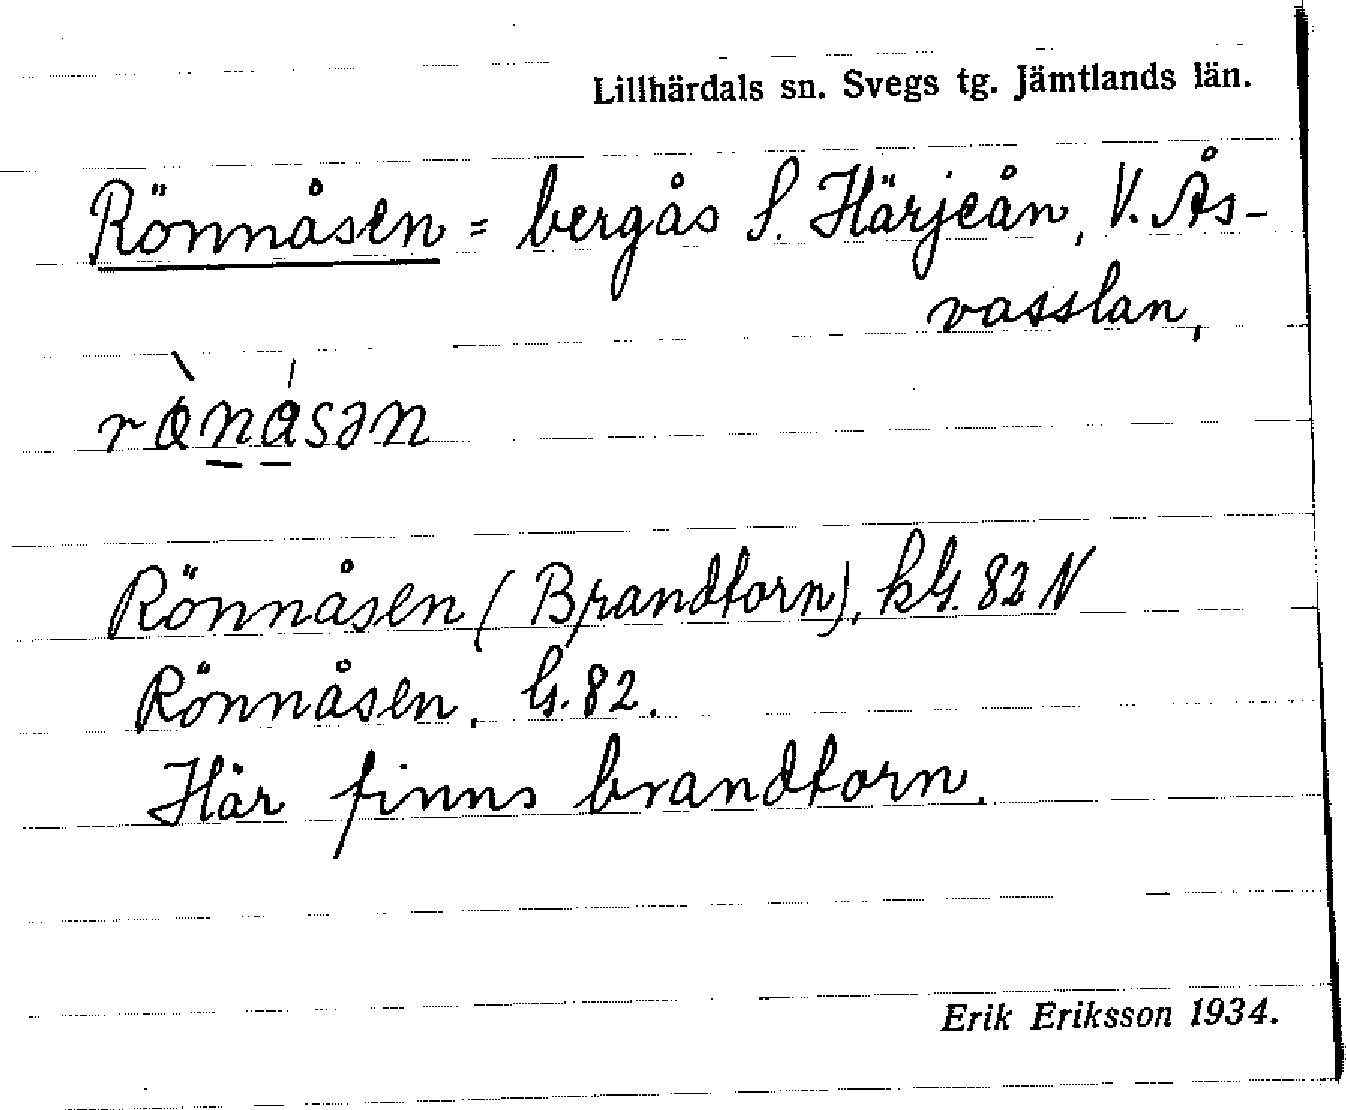 Lillhärdals sn. Svegs tg. Jämtlands län.
Rönnåsen = bergås S. Härjeån, V. Ås-
vasslan,
Rönnåsen (Brandtorn), kG. 82 N
Rönnåsen, G. 82.
Här finns brandtorn.
Erik Eriksson 1934.